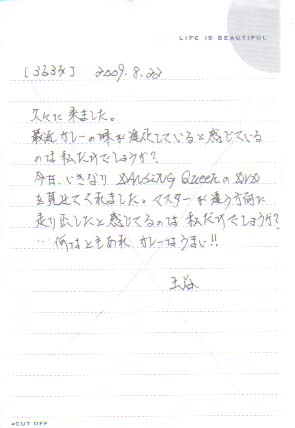 LIFE IS BEAUTIFUL
[3633] 2009.8.22
久々に来ました。
最近カレーの味が進化していると感じている
のは私だけでしょうか?
今日、いきなり DANSING QueenのDVD
を見せてくれました。マスターが違う方向に
走り出したと感じてるのは私だけでしょうか?
…何はともあれ カレーはうまい!!
CUT OFF